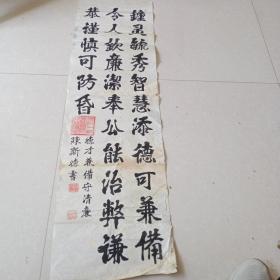 鍾灵毓秀智慧添德可兼備
令人欽廉潔奉公能治弊謙
恭谨慎可防昏
德才兼備守清廉
陳新德書